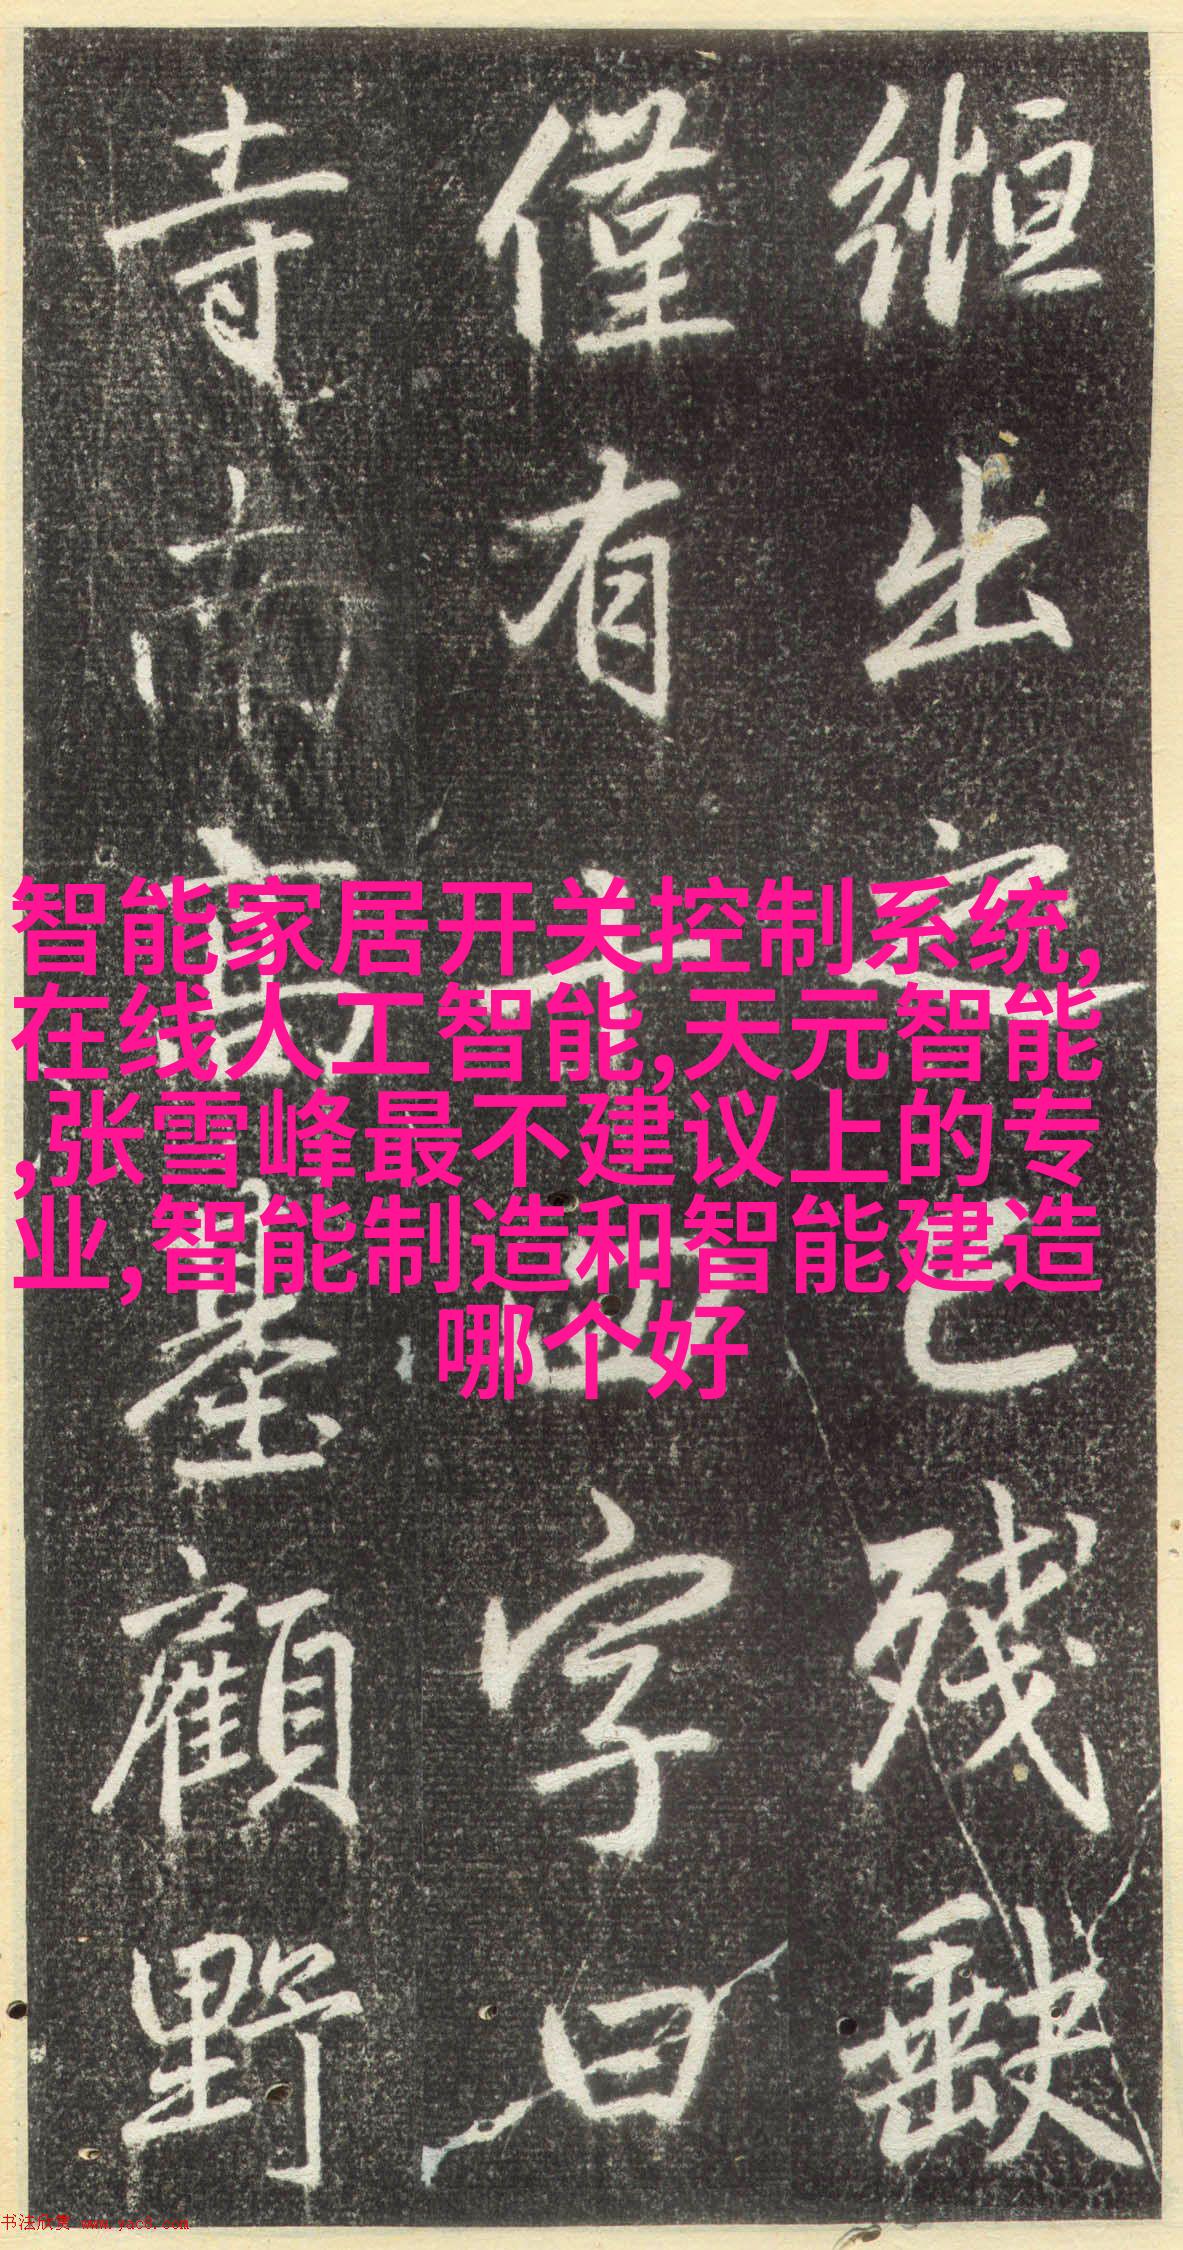 縆出之已残缺
僅有十四字曰
寺高臺顧野
智能家居开关控制系统,
在线人工智能,天元智能
,张雪峰最不建议上的专
业,智能制造和智能建造
哪个好
书法欣赏 www.yac8.com